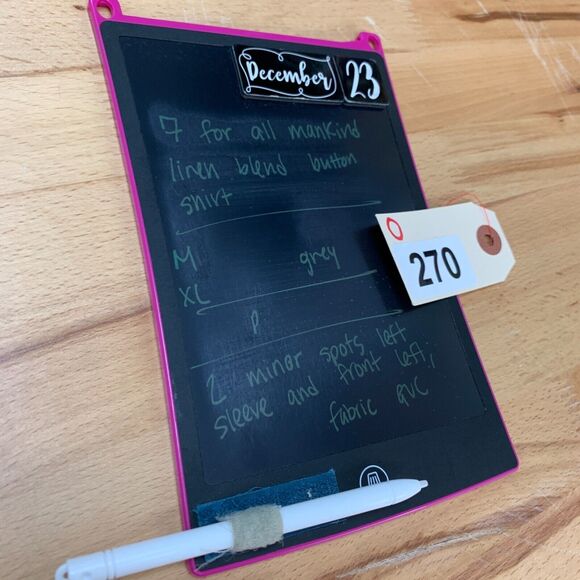 December 23
7 for all mankind
linen blend button
shirt
M grey
XL
P
2 minor spots left
sleeve and front left;
fabric gvc
270